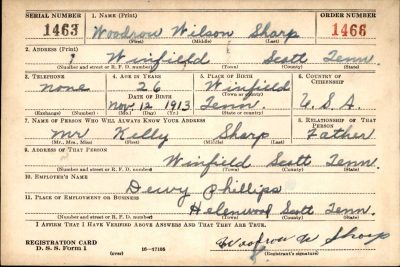 SERIAL NUMBER 1. NAME (Print) ORDER NUMBER
1463 Woodrow Wilson Sharp 1466
(First) (Middle) (Last)
2. ADDRESS (Print)
Winfield Scott Tenn.
(Number and street or R. F. D. number) (Town) (County) (State)
3. TELEPHONE 4. AGE IN YEARS 5. PLACE OF BIRTH 6. COUNTRY OF CITIZENSHIP
none 26 Winfield
DATE OF BIRTH (Town or county)
Nov. 12, 1913 Tenn. U.S.A.
(Exchange) (Number) (Mo.) (Day) (Yr.) (State or country)
7. NAME OF PERSON WHO WILL ALWAYS KNOW YOUR ADDRESS 8. RELATIONSHIP OF THAT PERSON
Mr Kelly Sharp Father
(Mr., Mrs., Miss) (First) (Middle) (Last)
9. ADDRESS OF THAT PERSON
Winfield Scott Tenn.
(Number and street or R. F. D. number) (Town) (County) (State)
10. EMPLOYER'S NAME
Dewy Phillips
11. PLACE OF EMPLOYMENT OR BUSINESS
Helenwood Scott Tenn.
(Number and street or R. F. D. number) (Town) (County) (State)
I AFFIRM THAT I HAVE VERIFIED ABOVE ANSWERS AND THAT THEY ARE TRUE.
REGISTRATION CARD Woodrow W Sharp
D. S. S. Form 1 (over) 16-17105 (Registrant's signature)